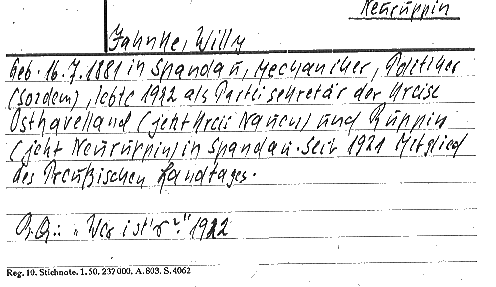 Neuruppin
Jahnke, Willy
Geb. 16.7.1881 in Spandau, Mechaniker, Politiker
(Sozdem), lebte 1922 als Parteisekretär der Kreise
Osthavelland (jetzt Kreis Nauen) und Ruppin
(jetzt Neuruppin) in Spandau. Seit 1921 Mitglied
des Preußischen Landtages.
"Wer ist's?" 1922
Reg. 10. Stichnote. 1. 50. 237000. A. 803. S. 4062